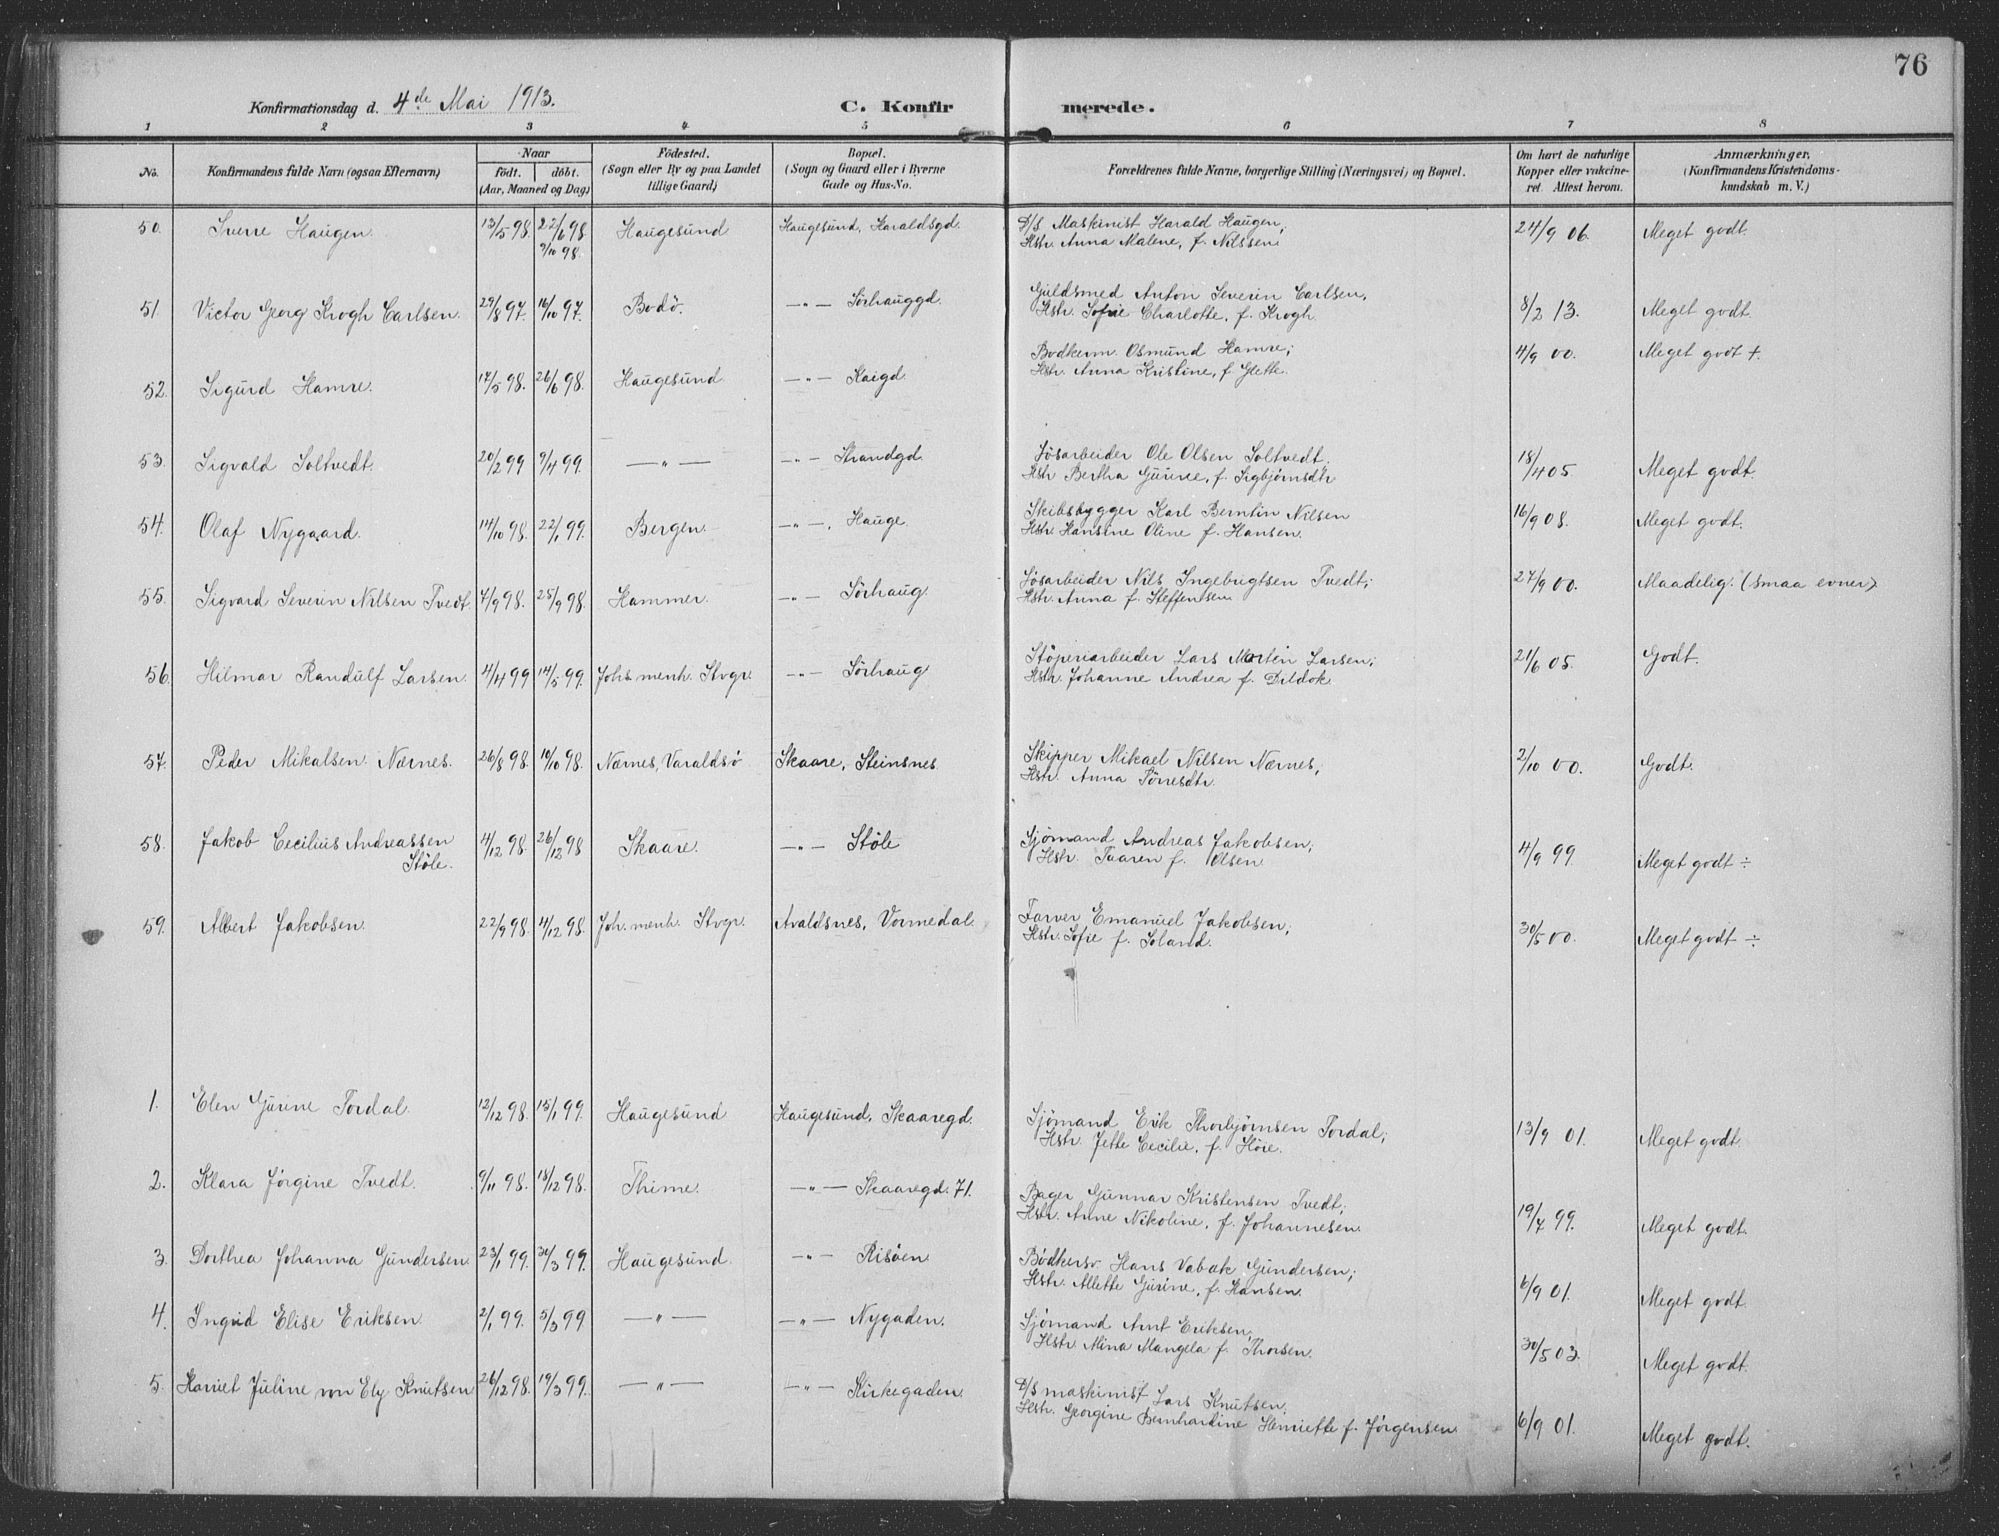 76
Konfirmationsdag d. 4de Mai 1913. C. Konfirmerede.
1 2 3 4 5 6 7 8
No. Konfirmandens fulde Navn (ogsaa Efternavn) Naar født. døbt. (Aar, Maaned og Dag) Fødested. (Sogn eller By og paa Landet tillige Gaard) Bopæl. (Sogn og Gaard eller i Byerne Gade og Hus-No. Forældrenes fulde Navne, borgerlige Stilling (Næringsvei) og Bopæl. Om havt de naturlige Kopper eller vakcineret. Attest herom. Anmærkninger. (Konfirmandens Kristendomskundskab m. V.)
50. Sverre Haugen. 13/5 98. 22/6 98. Haugesund Haugesund, Haraldsgd. D/S Maskinist Harald Haugen, 24/9 06. Meget godt.
9/10 98. Hstr. Anna Malene, f. Nilssen.
51. Victor Georg Krogh Carlsen. 29/8 97. 16/10 97. Bodö. —"— Sörhauggd. Guldsmed Anton Severin Carlsen, 8/2 13. Meget godt.
Hstr. Sofie Charlotte, f. Krogh.
52. Sigurd Hamre. 17/5 98. 26/6 98. Haugesund —"— Kaigd. Bodkerm. Osmund Hamre; 4/9 00. Meget godt +
Hstr. Anna Kristine, f. Glette.
53. Sigvald Soltvedt. 20/2 99 9/4 99. —"— —"— Strandgd. Jösarbeider Ole Olsen Soltvedt, 18/4 05. Meget godt.
Hstr Bertha Gurine, f. Sigbjørnsdtr
54. Olaf Nygaard. 14/10 98. 22/1 99. Bergen. —"—. Hauge. Skibsbygger Karl Berntin Nilsen 16/9 08. Meget godt.
Hstr. Hansine Oline f. Hansen.
55. Sigvard Severin Nilsen Tvedt. 7/9 98. 25/9 98. Hammer. —"— Sörhaug. Jösarbeider Nils Ingebrigtsen Tvedt; 27/9 00. Maadelig. (smaa evner)
Hstr. Anna f. Steffensen
56. Hilmar Randulf Larsen. 4/4 99 14/5 99. Johs. menh. Stvgr. —"— Sörhaug Stöperiarbeider Lars Martin Larsen; 21/6 05. Godt.
Hstr. Johanne Andrea f. Dildok
57. Peder Mikalsen Nærnes. 26/8 98. 19/10 98. Nærnes, Varaldsö Skaare, Steinsnes. Skipper Mikael Nilsen Nærnes, 2/10 00. Godt.
Hstr. Anna Tönnesdtr.
58. Jakob Cecilius Andreassen 4/12 98. 26/12 98 Skaare. —"— Stöle Sjömand Andreas Jakobsen; 4/9 99. Meget godt ÷
Stöle. Hstr. Taaren f. Olsen.
59. Albert Jakobsen. 22/9 98. 4/12 98. Joh. menh. Stvgr. Avaldsnes, Vormedal. Farver Emanuel Jakobsen; 30/5 00. Meget godt ÷
Hstr. Sofie f. Soland.
1. Elen Gurine Tordal. 12/12 98. 15/1 99. Haugesund Haugesund, Skaaregd. Sjömand Erik Thorbjørnsen Tordal; 13/9 01. Meget godt.
Hstr. Jette Cecilie, f. Höie.
2. Klara Jørgine Tvedt. 9/11 98. 18/12 98. Thime. —"— Skaaregd. 71. Bager Gunnar Kristensen Tvedt; 19/7 99. Meget godt.
Hstr. Anne Nikoline, f. Johannesen.
3. Dorthea Johanna Gundersen. 23/1 99. 30/3 99. Haugesund. —"— Risöen Bødkersv. Hans Vabak Gundersen; 6/9 01. Meget godt.
Hstr. Allette Gurine, f. Hansen.
4. Ingrid Elise Eriksen. 2/1 99. 5/3 99 —"— —"— Nygaden. Sjömand Arnt Eriksen, 30/5 03. Meget godt.
Hstr. Mina Mangela f. Thorsen.
5. Harriet Juline von Ely Knutsen. 26/12 98. 19/3 99. —"— —"— Kirkegaden. D/S maskinist Lars Knutsen. 6/9 01. Meget godt.
Hstr. Georgine Bernhardine Henriette f. Jørgensen.